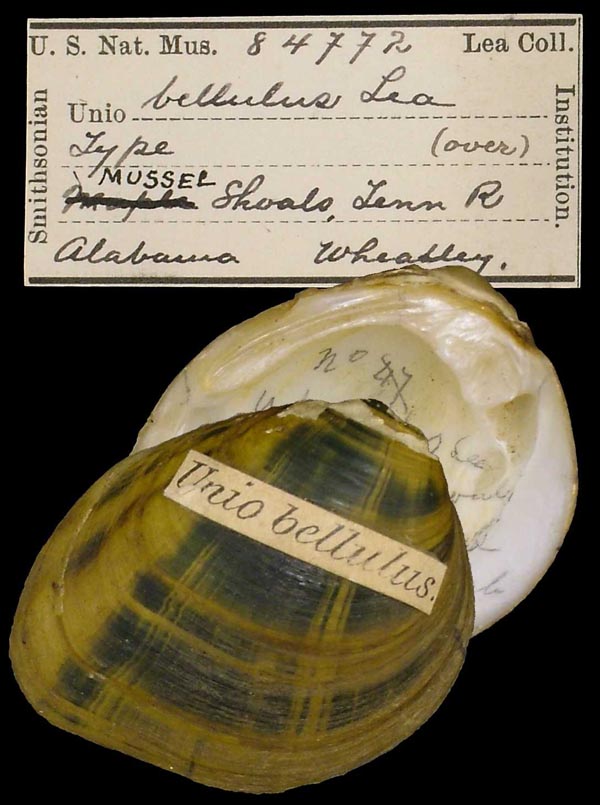 U. S. Nat. Mus. 84772 Lea Coll.
Smithsonian
Institution.
Unio bellulus Lea
Type (over)
MUSSEL
Shoals, Tenn R
Alabama Wheatley.
No 47
Lea
Unio bellulus.